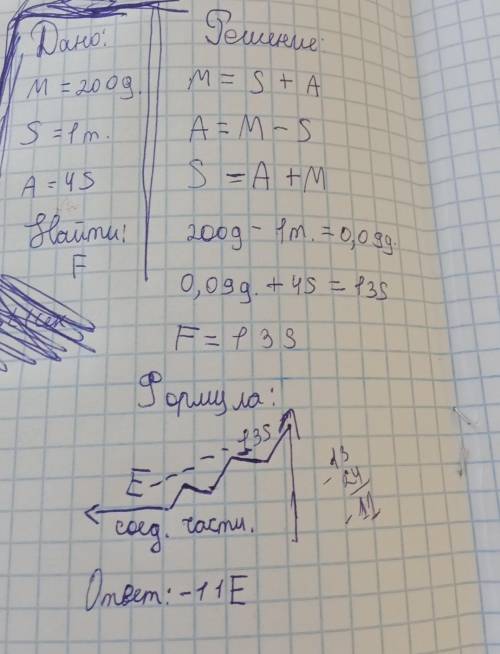 Дано:
M = 200g.
S = 1m.
A = 4S
Найти:
F
Решение:
M = S + A
A = M - S
S = A + M
200g - 1m. = 0,09g.
0,09g. + 4S = 13S
F = 13S
Формула:
13S
E
соед. части.
13
24
11
Ответ: -11E